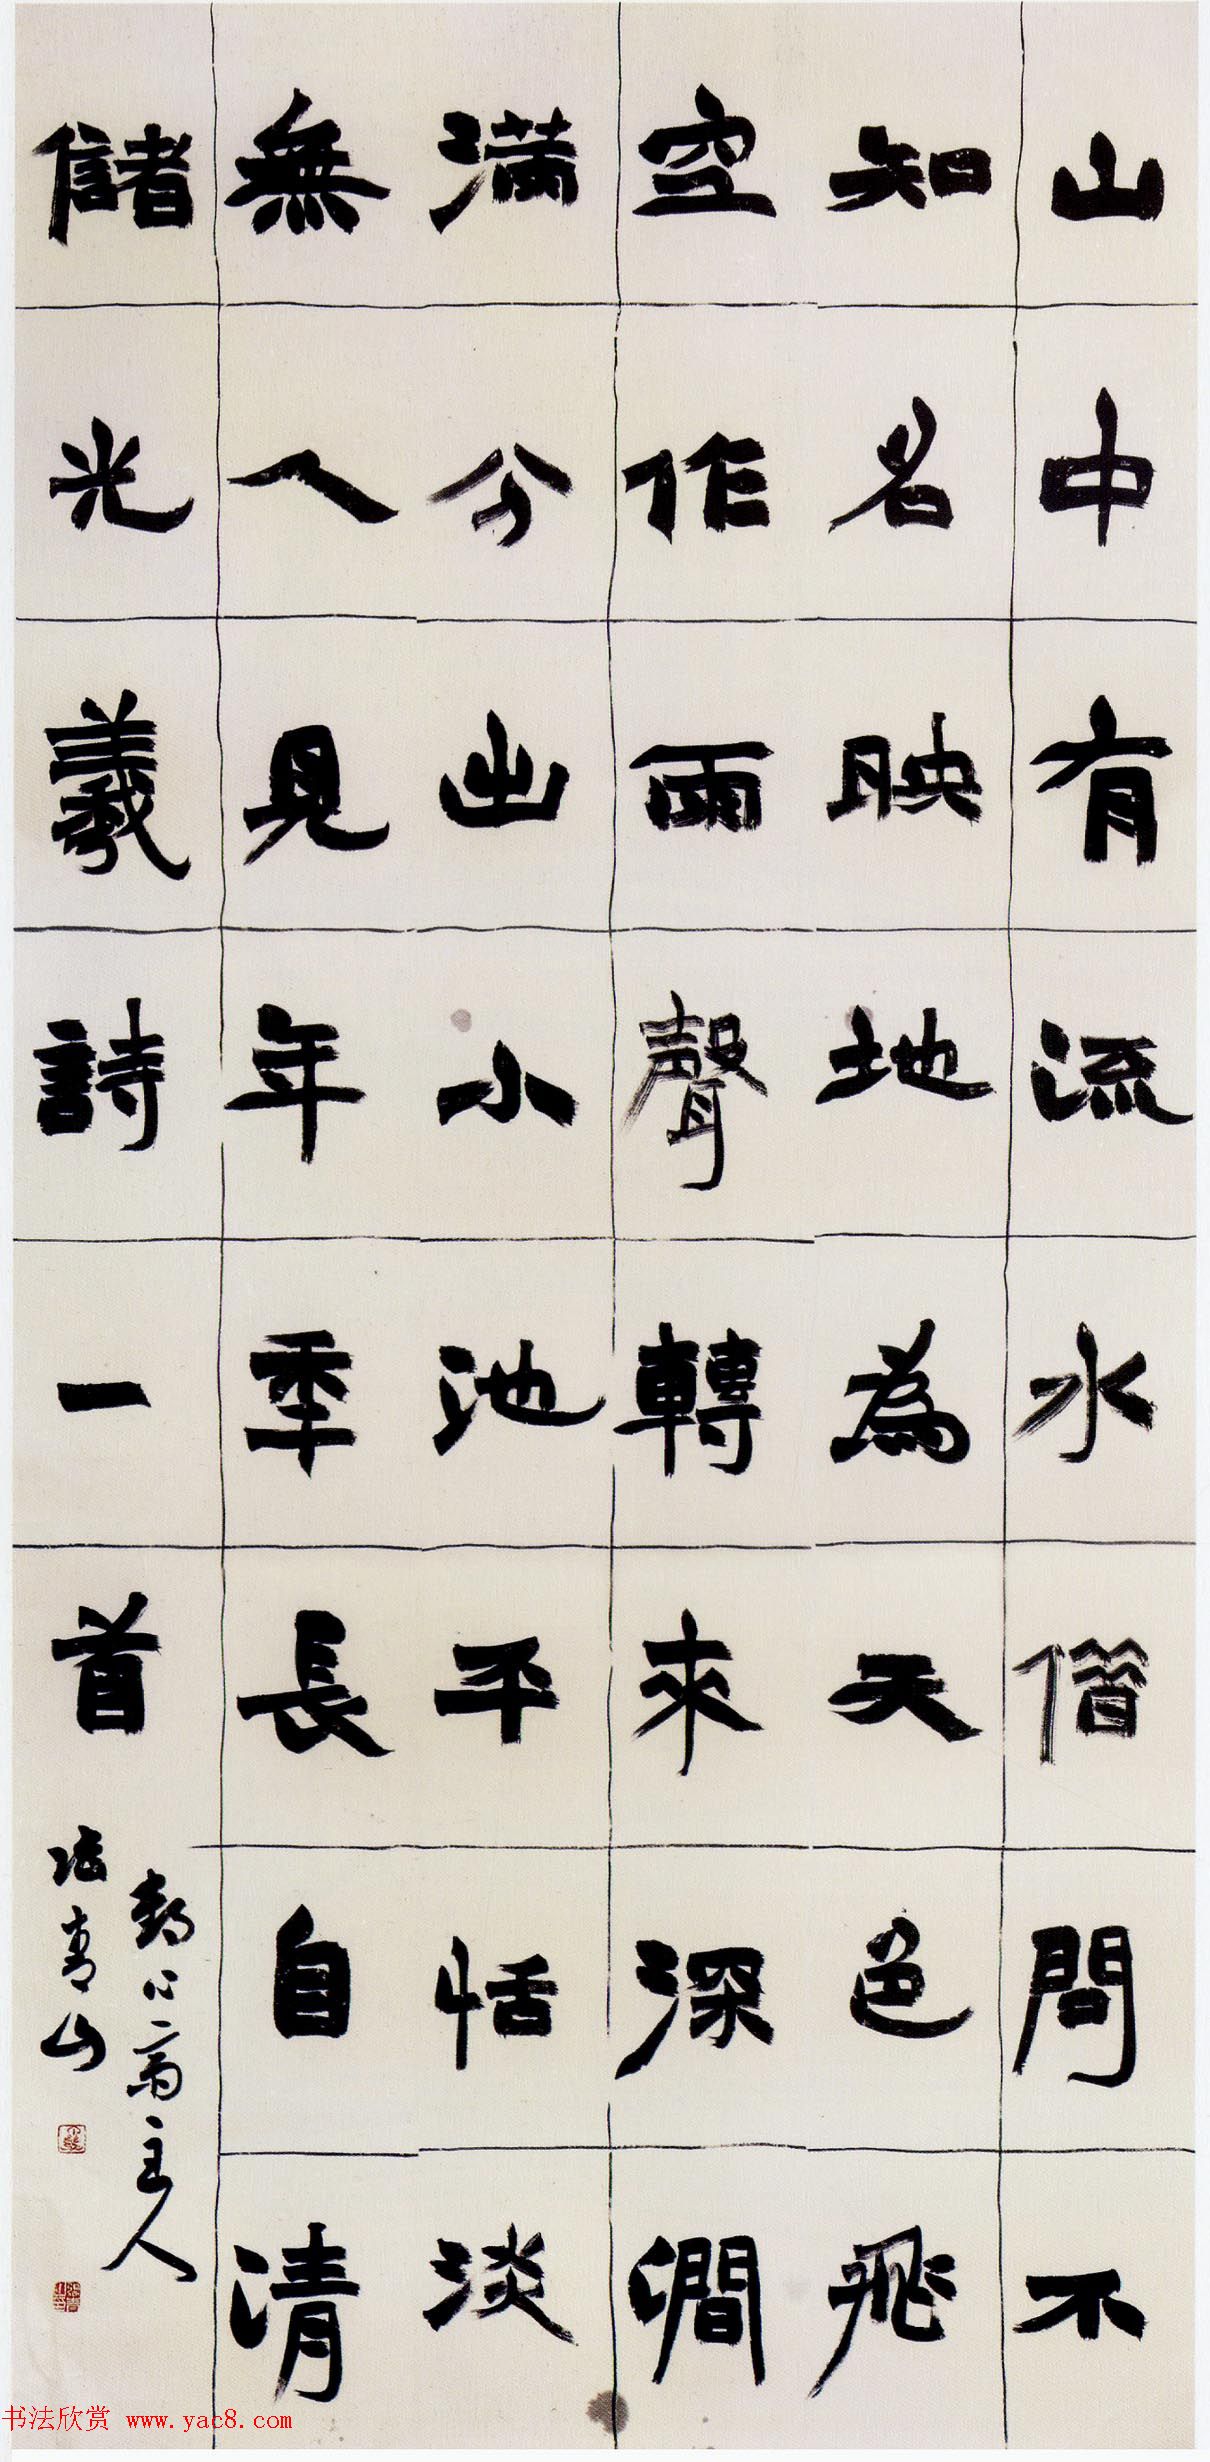 山中有流水借問不
知名映地為天色飛
空作雨聲轉來深澗
滿分出小池平恬淡
無人見年季長自清
儲光羲詩一首
齋主人
張青山
书法欣赏 www.yac8.com